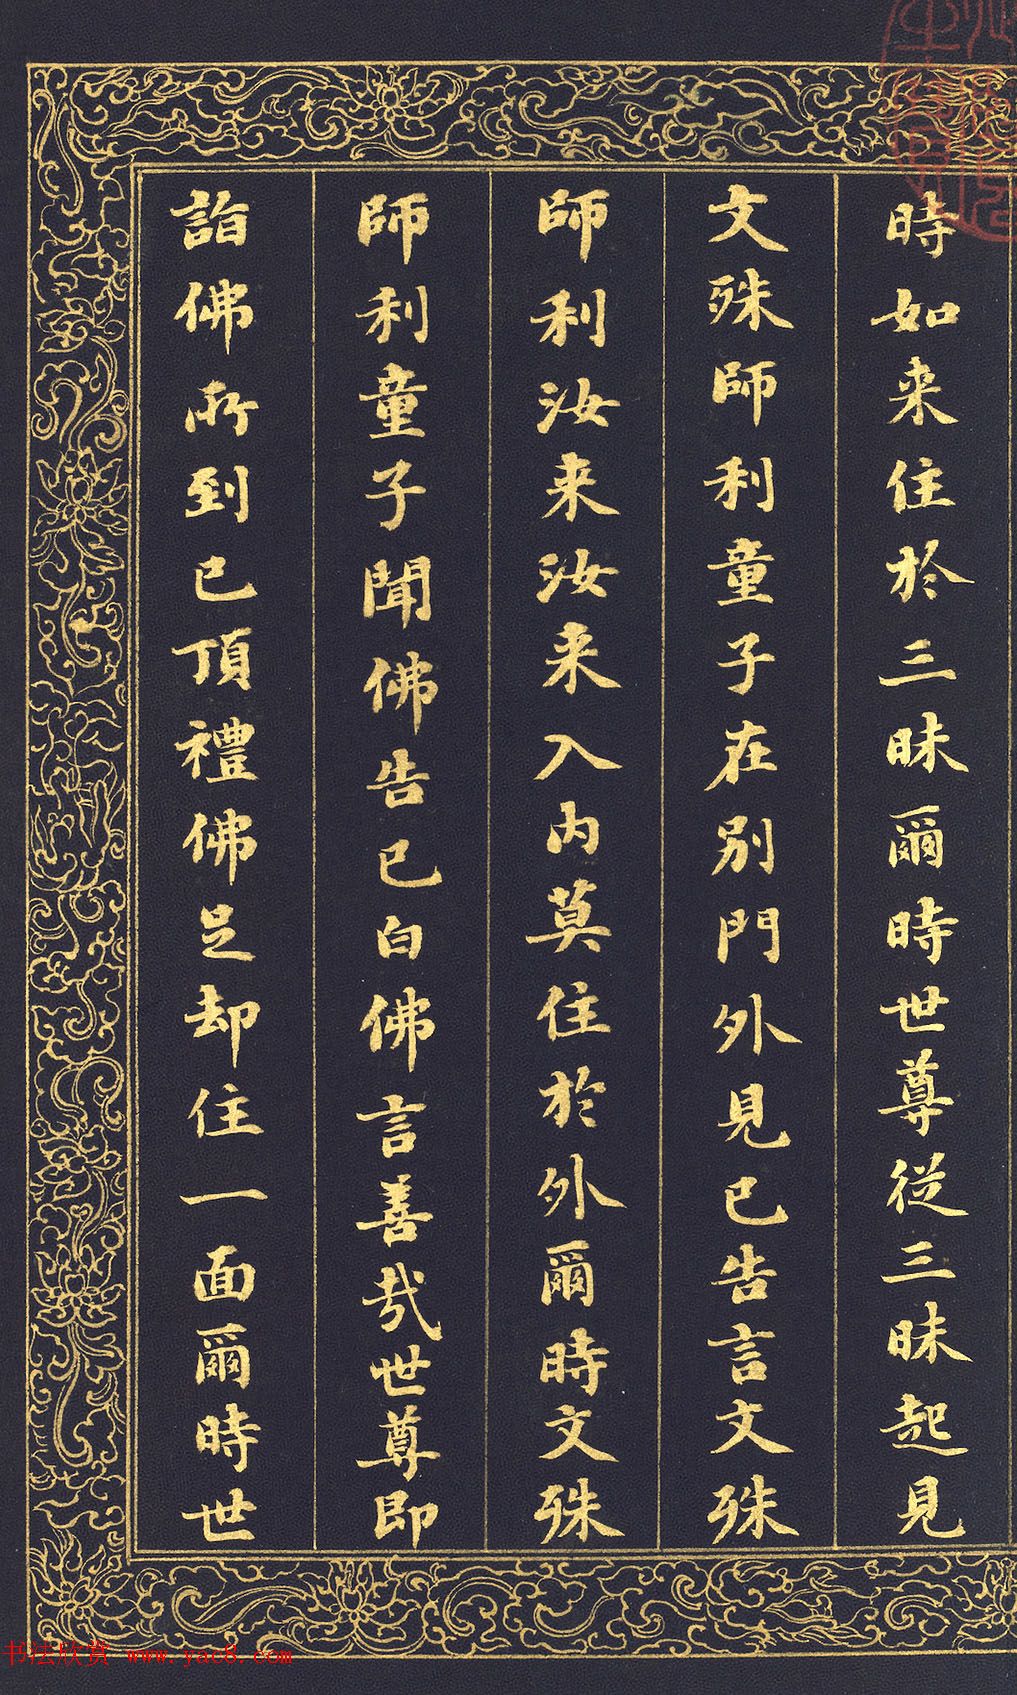 時如来住於三昧爾時世尊従三昧起見
文殊師利童子在別門外見已告言文殊
師利汝来汝来入内莫住於外爾時文殊
師利童子聞佛告已白佛言善哉世尊即
詣佛所到已頂禮佛足却住一面爾時世
书法欣赏 www.yac8.com